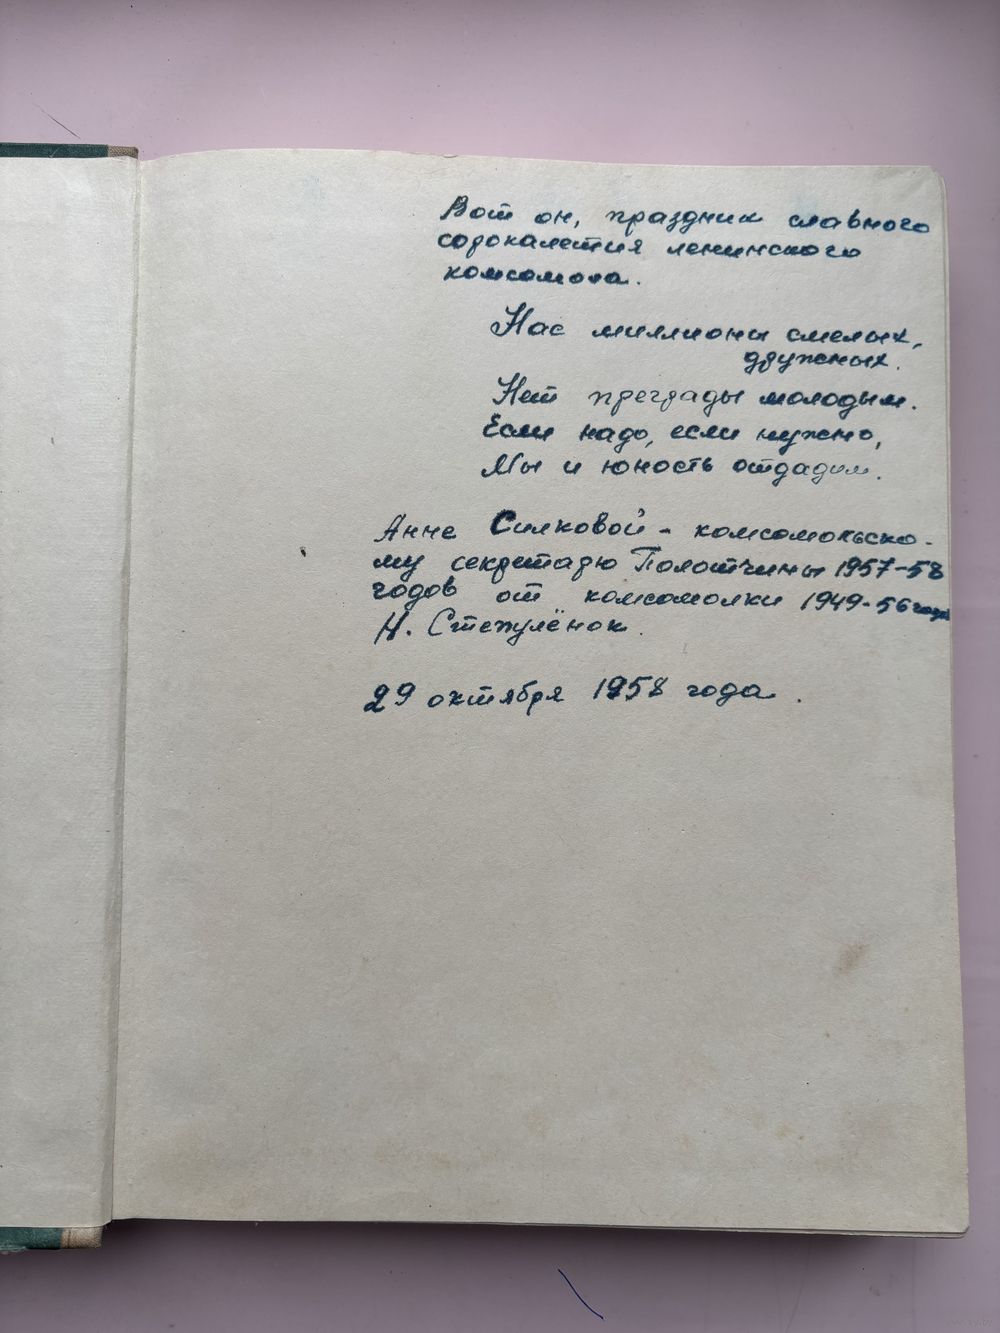 Вот он, праздник славного
сорокалетия ленинского
комсомола.
Нас миллионы смелых,
дружных.
Нет преграды молодым.
Если надо, если нужно,
Мы и юность отдадим.
Анне Силковой - комсомольско-
му секретарю Полотчины 1957-58
годов от комсомолки 1949-56 годов
Н. Стежулёнок.
29 октября 1958 года.